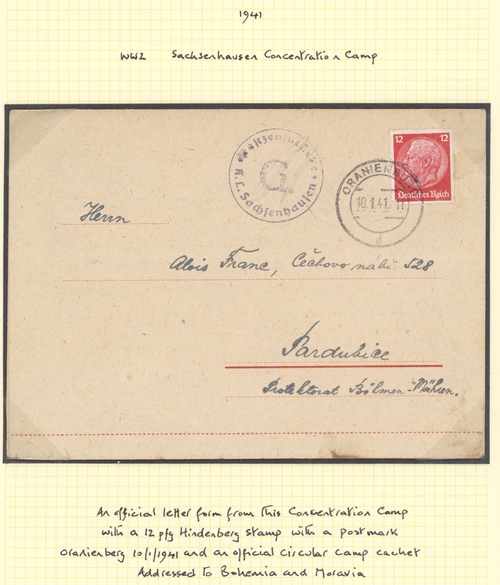 1941
WW2 Sachsenhausen Concentration Camp
K.L. Sachsenhausen
G.
12 12
Deutsches Reich
ORANIENBURG
10.1.41
d
Herrn
Alois Franc, Čechovo nábř 528
Pardubice
Protektorat Böhmen-Mähren.
An official letter form from this Concentration Camp
with a 12 pfg Hindenberg stamp with a postmark
Oranienberg 10/1/1941 and an official circular camp cachet
Addressed to Bohemia and Moravia